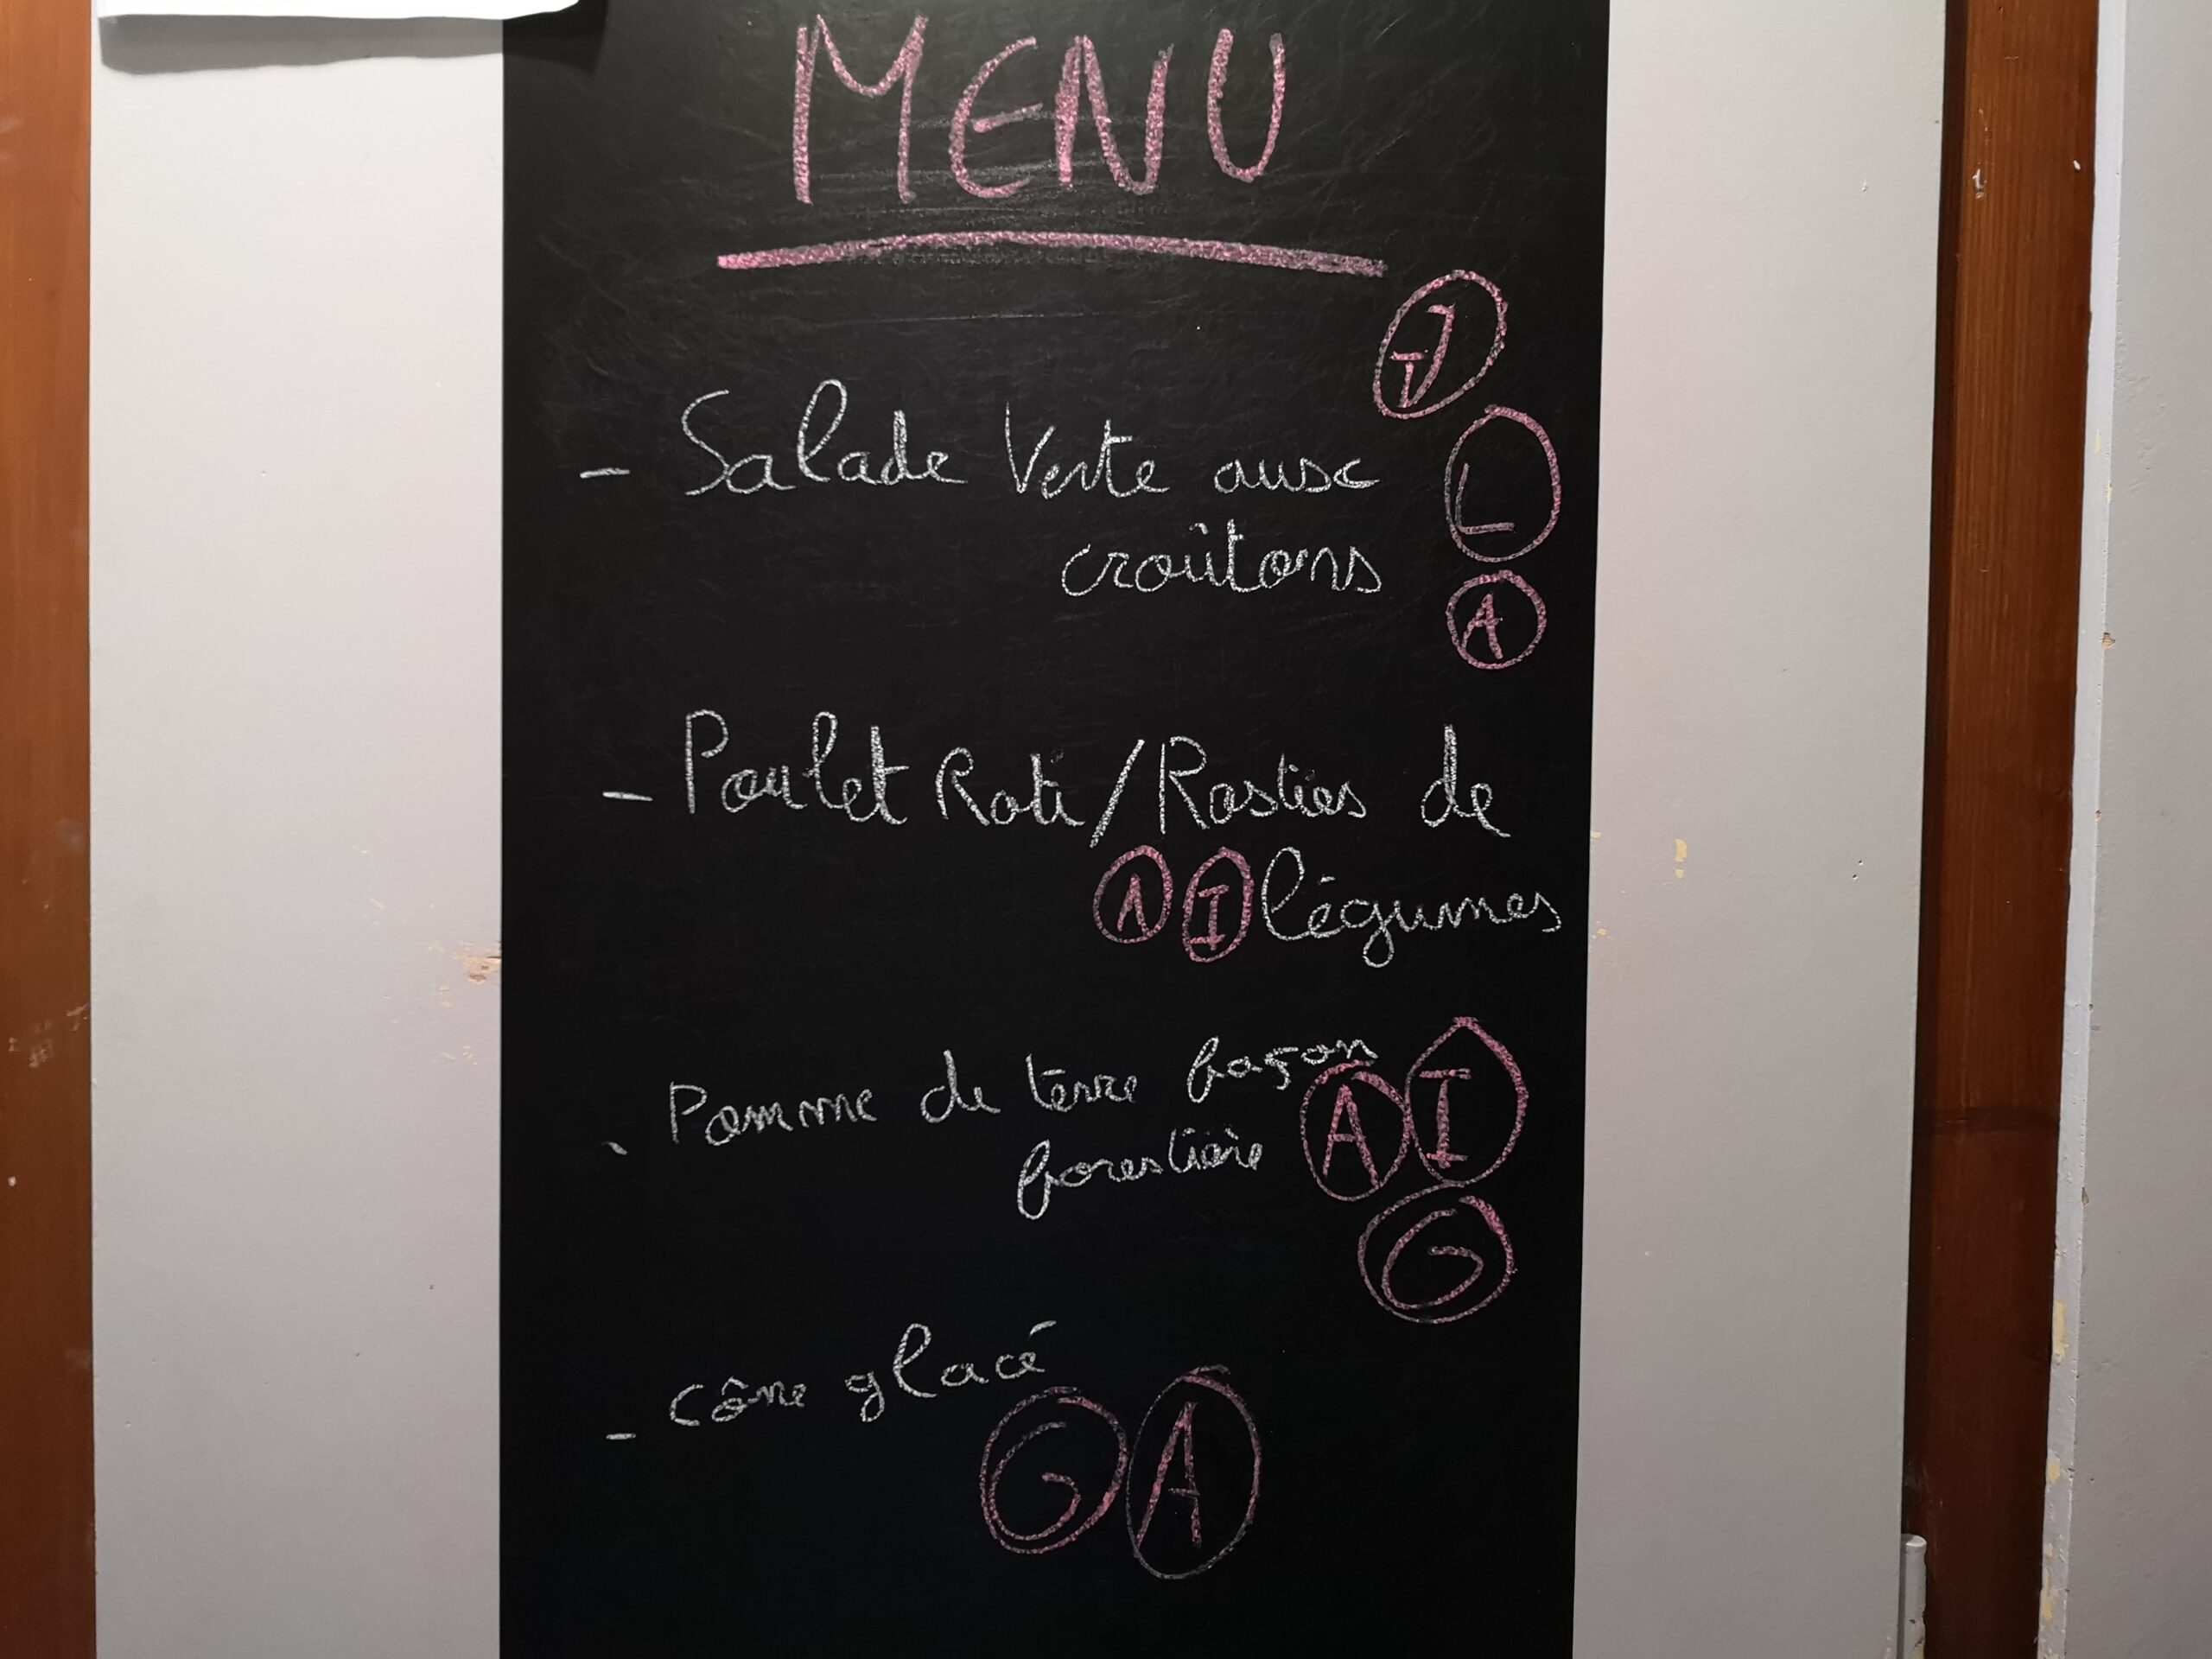 MENU
- Salade Verte aux
croûtons
L
A
- Poulet Roti / Rosties de
A I légumes
- Pomme de terre façon
forestière A I
G
- cône glacé
G A